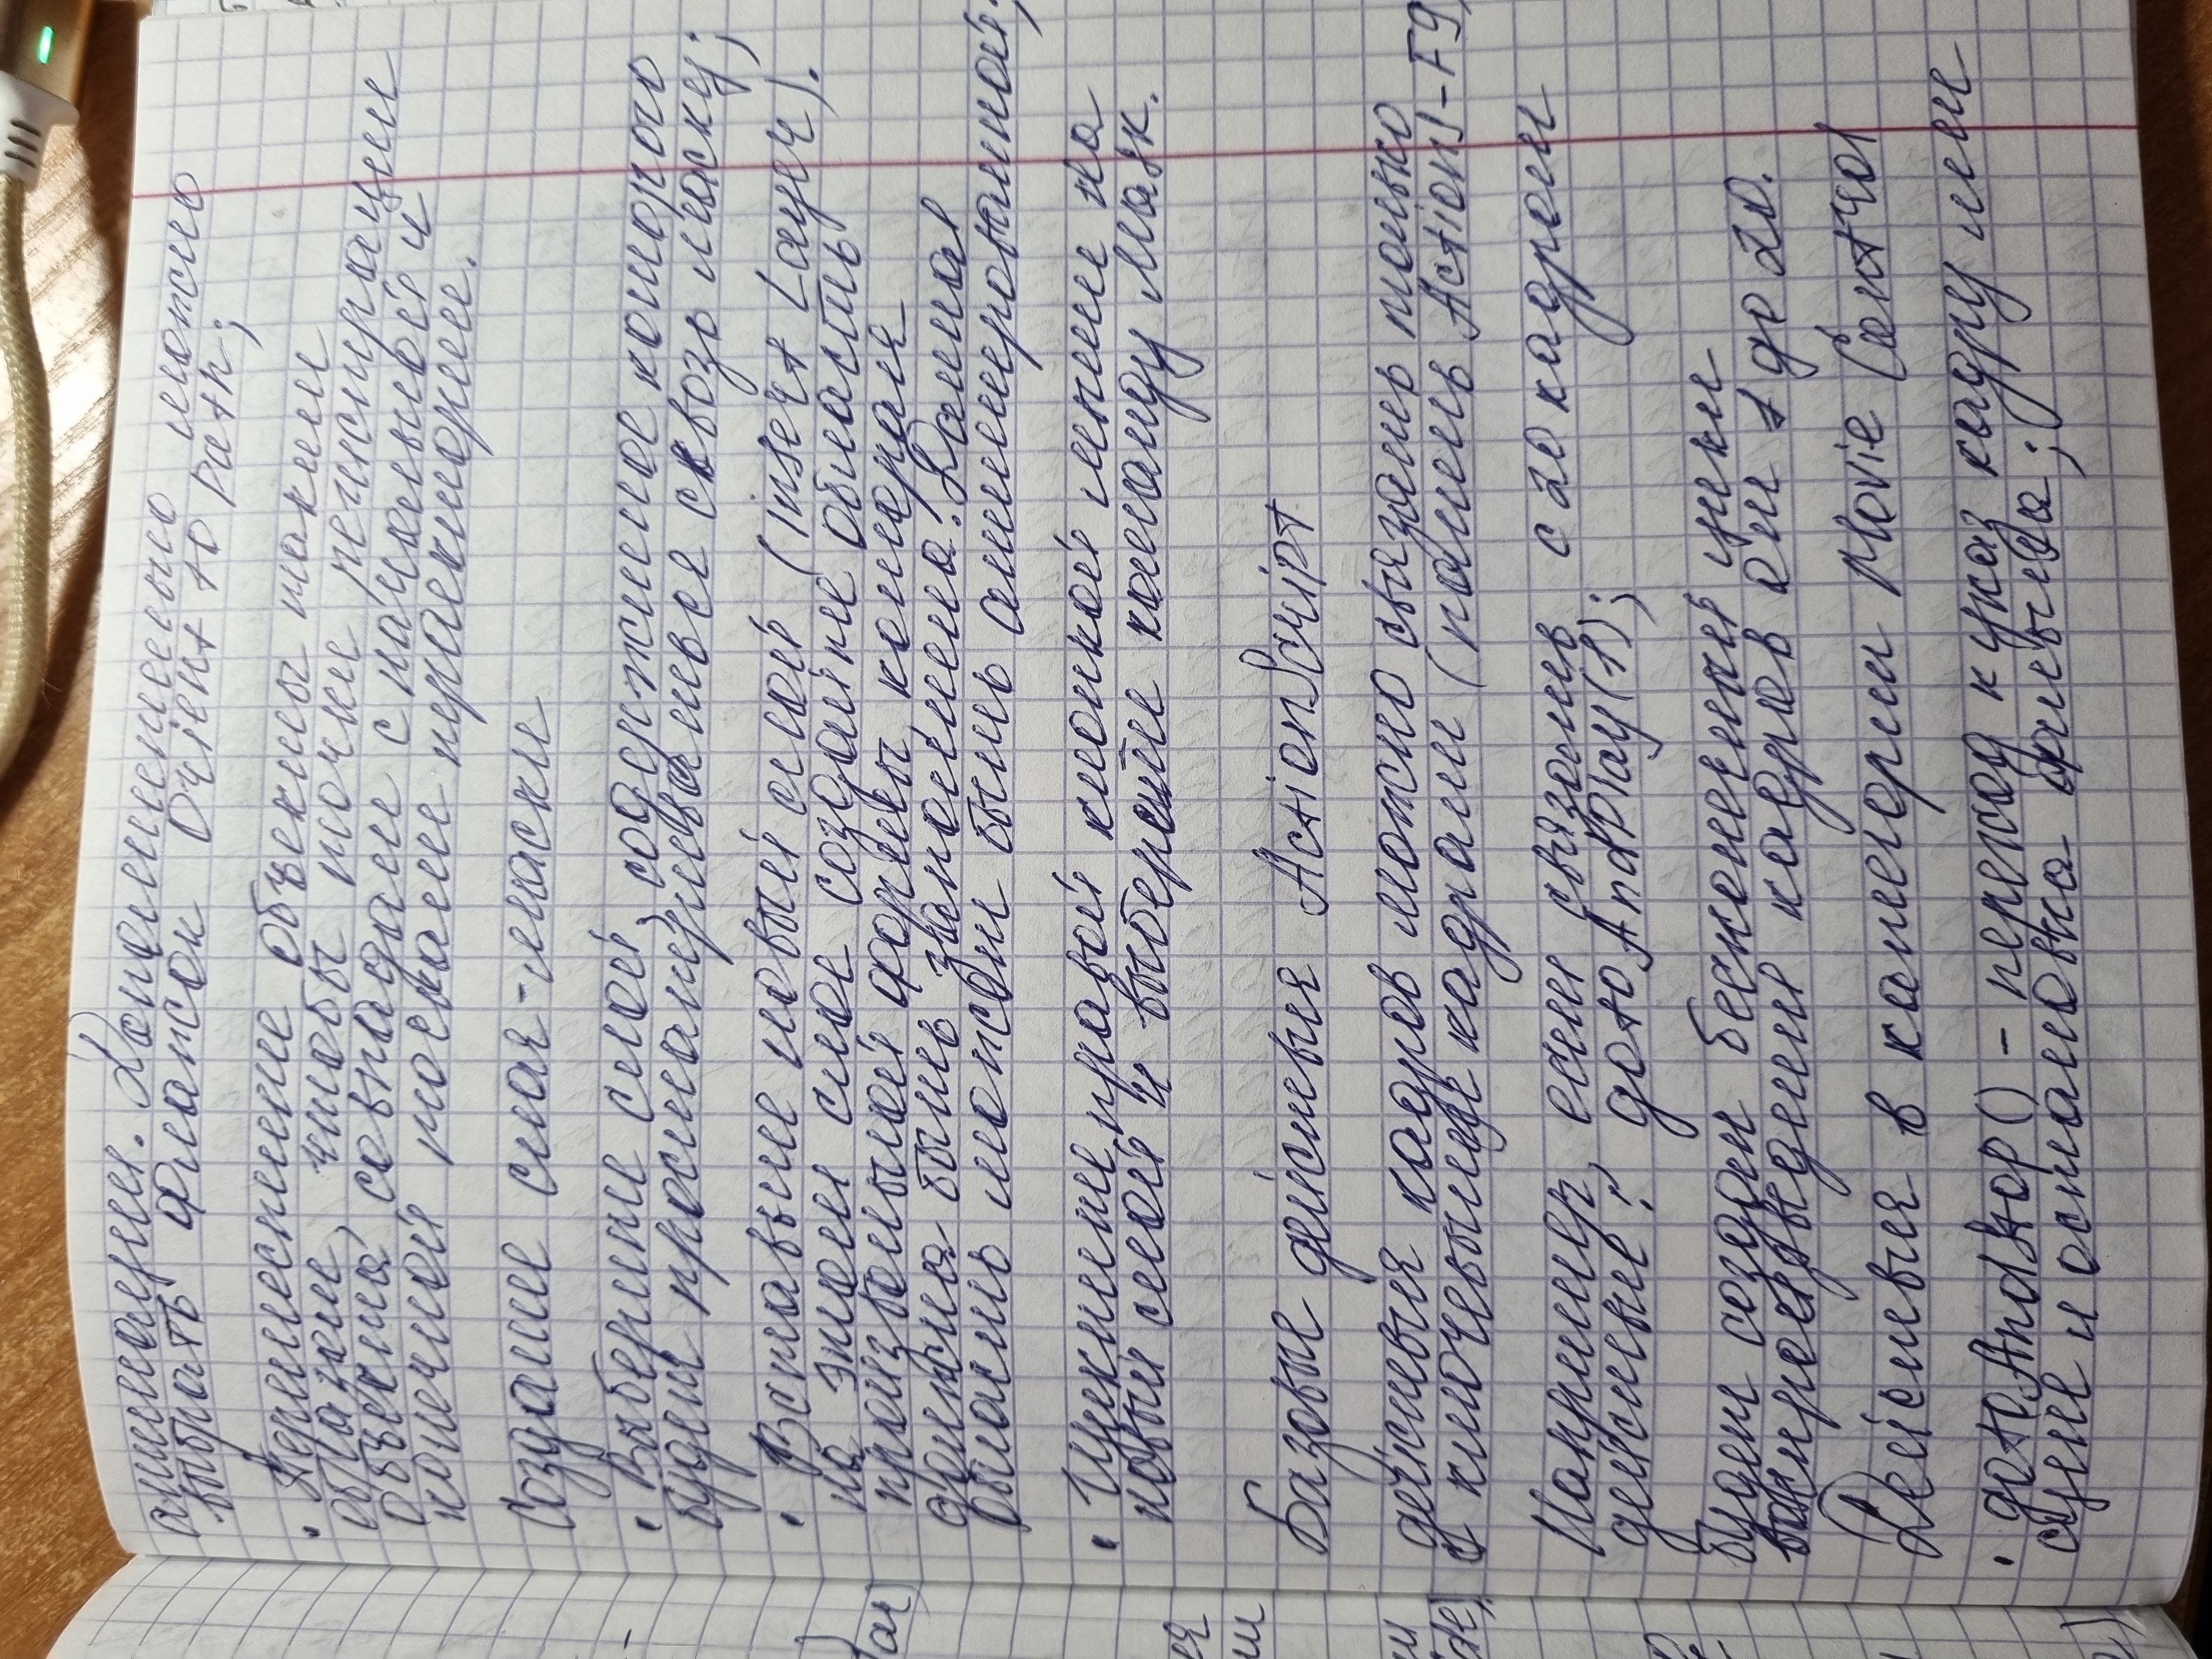 анимации. Дополнительно можно
выбрать флажок Orient to path;
• Переместите объекты таким
образом, чтобы точки регистрации
объекта совпадали с начальной и
конечной точками траектории.
Создание слоя-маски
• Выберите слой, содержимое которого
будет просматриваться сквозь маску;
• Вставьте новый слой (insert Layer).
на этом слое создайте область
произвольной формы, которая
должна быть заполнена. Данная
область может быть анимированной;
• Щелкните правой кнопкой мыши на
новый слой и выберите команду Mask.
Базовые действия ActionScript
действия кадров можно связать только
с ключевыми кадрами (панель Actions-F9)
Например, если связать с 20 кадром
действие: gotoAndPlay(1);
будет создан бесконечный цикл
воспроизведения кадров от 1 до 20.
Действия в категории Movie Control
• gotoAndStop() - переход к указ кадру или
сцене и остановка фильма;